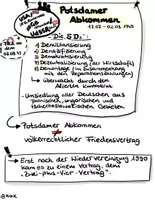 Potsdamer
Abkommen
17.07. - 02.08.1945
Die 5 D's:
Demilitarisierung
Denazifizierung
Demokratisierung
Dezentralisierung (der Wirtschaft)
Demontage (im Zusammenhang
mit den Reparationszahlungen)
→ überwacht durch den
Alliierten Kontrollrat
- Umsiedlung aller Deutschen aus
polnischen, ungarischen und
tschechoslowakischen Gebieten
↳ Potsdamer Abkommen
≠
völkerrechtlicher Friedensvertrag
Erst nach der Wiedervereinigung 1990
kam es zu einem Vertrag, dem
"Zwei-plus-Vier-Vertrag".